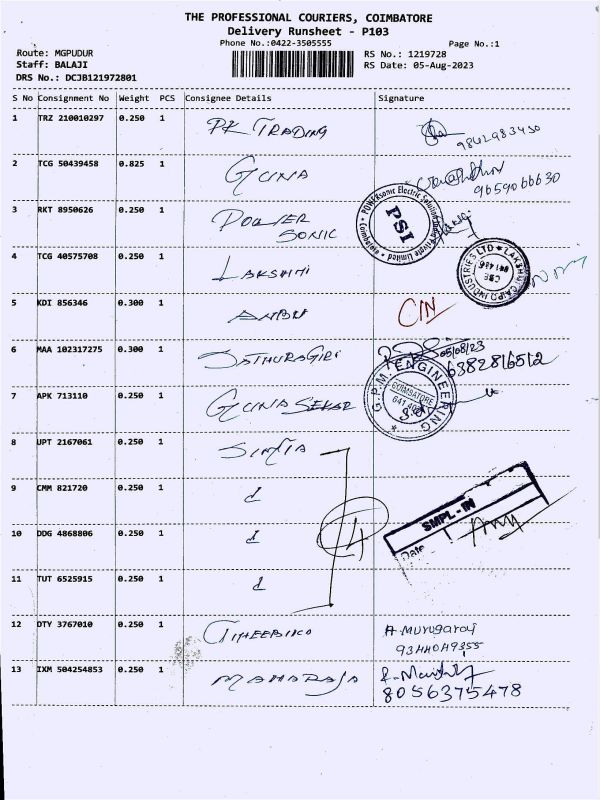 THE PROFESSIONAL COURIERS, COIMBATORE
Delivery Runsheet - P103
Phone No.:0422-3505555
Page No.:1
Route: MGPUDUR
RS No.: 1219728
Staff: BALAJI
RS Date: 05-Aug-2023
DRS No.: DCJB121972801
S No Consignment No Weight PCS Consignee Details Signature
1 TRZ 210010297 0.250 1 PK TRADING
9842983450
2 TCG 50439458 0.825 1 GUNA
9659066630
3 RKT 8950626 0.250 1 POWER SONIC
PSI
4 TCG 40575708 0.250 1 LAKSHMI
5 KDI 856346 0.300 1 ANBU C/N
6 MAA 102317275 0.300 1 SATHURAGIRI
05/08/23
6382816512
7 APK 713110 0.250 1 GUNA SEKAR
G.P.M. ENGINEERING
COIMBATORE
8 UPT 2167061 0.250 1
9 CMM 821720 0.250 1
10 DDG 4868806 0.250 1
4
SMPL - IN
Date
11 TUT 6525915 0.250 1
12 DTY 3767010 0.250 1
A. Murugaraj
9344049355
13 IXM 504254853 0.250 1 MAHARAJA
8056375478